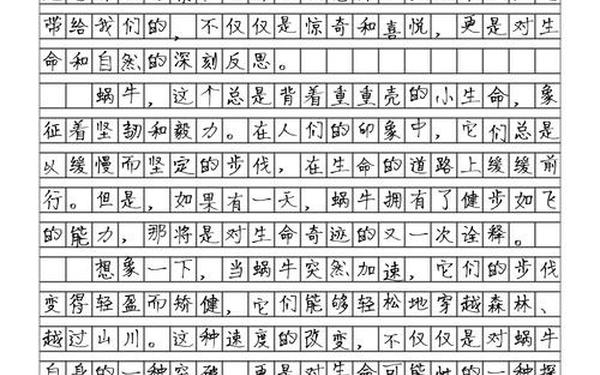 带给我们的，不仅仅是惊奇和喜悦，更是对生
命和自然的深刻反思。
蜗牛，这个总是背着重重壳的小生命，象
征着坚韧和毅力。在人们的印象中，它们总是
以缓慢而坚定的步伐，在生命的道路上缓缓前
行。但是，如果有一天，蜗牛拥有了健步如飞
的能力，那将是对生命奇迹的又一次诠释。
想象一下，当蜗牛突然加速，它们的步伐
变得轻盈而矫健，它们能够轻松地穿越森林、
越过山川。这种速度的改变，不仅仅是对蜗牛
自身的一种突破，更是对生命可能性的一种探